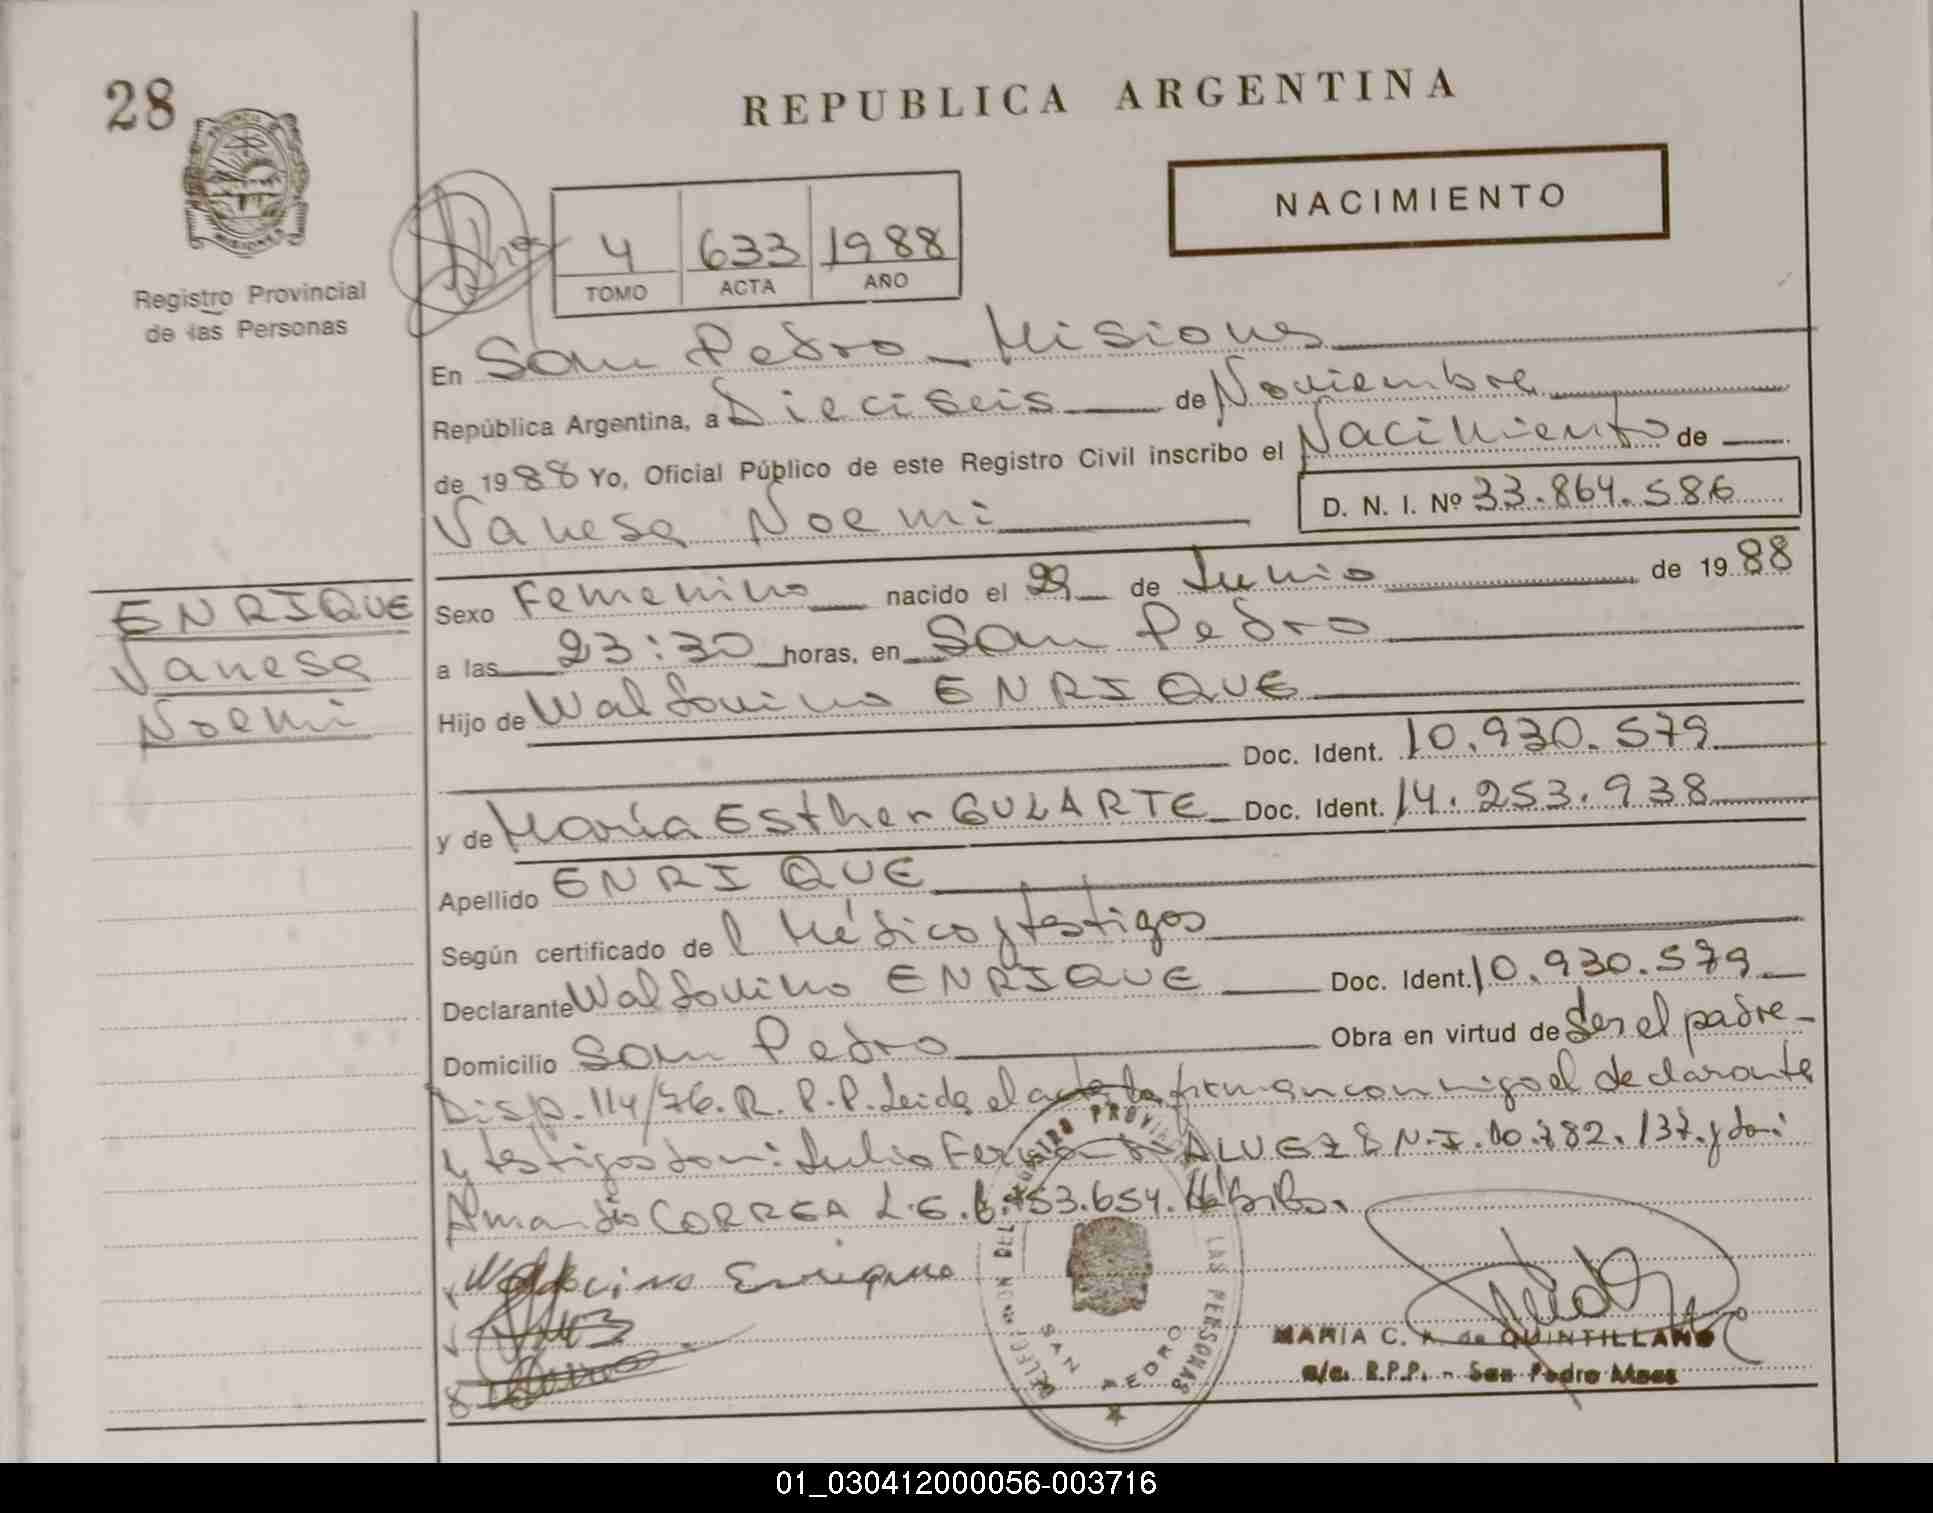 28
REPUBLICA ARGENTINA
NACIMIENTO
4 633 1988
TOMO ACTA AÑO
Registro Provincial
de las Personas
En San Pedro - Misiones
República Argentina, a Dieciseis de Noviembre
de 1988 Yo, Oficial Público de este Registro Civil inscribo el Nacimiento de
Vanesa Noemi D. N. I. Nº 33.864.586
ENRIQUE
Vanesa
Noemi
Sexo Femenino nacido el 29 de Junio de 1988
a las 23:30 horas, en San Pedro
Hijo de Waldovino ENRIQUE
Doc. Ident. 10.930.579
y de María Esther GULARTE Doc. Ident. 14.253.938
Apellido ENRIQUE
Según certificado del Médico y testigos
Declarante Waldovino ENRIQUE Doc. Ident. 10.930.579
Domicilio San Pedro Obra en virtud de Ser el padre -
Disp. 114/76. R. P. P. Leida el acta la firman conmigo el declarante
y testigos Don: Julio ALVEZ N.I. 10.782.137. y Don:
Amando CORREA L.E. 53.654.
Enrique
DELEGACION DEL REGISTRO PROVINCIAL LAS PERSONAS
SAN PEDRO
MARIA C. de QUINTILLANO
a/c. R.P.P. - San Pedro Mnes
01_030412000056-003716